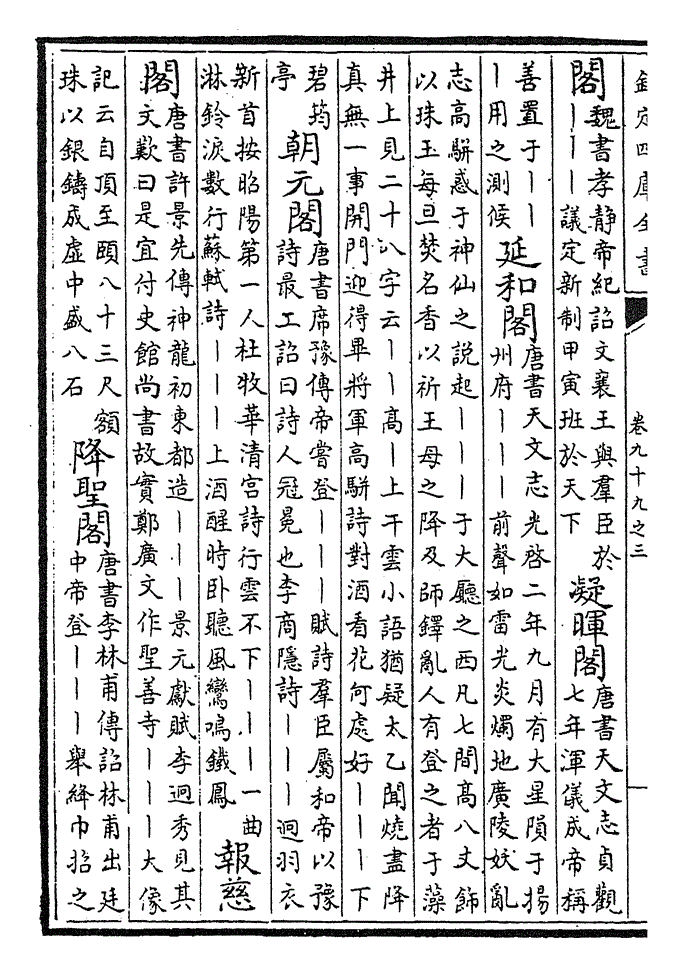 欽定四庫全書
卷九十九之三
閣
魏書孝静帝紀詔文襄王與羣臣於
｜｜｜議定新制甲寅班於天下
凝暉閣
唐書天文志貞觀
七年渾儀成帝稱
善置于｜｜
｜用之測候
延和閣
唐書天文志光啓二年九月有大星隕于揚
州府｜｜｜前聲如雷光炎燭地廣陵妖亂
志高駢惑于神仙之説起｜｜｜于大廳之西凡七間高八丈飾
以珠玉每旦焚名香以祈王母之降及師鐸亂人有登之者于藻
井上見二十八字云｜｜高｜上干雲小語猶疑太乙聞燒盡降
真無一事開門迎得畢將軍高駢詩對酒看花何處好｜｜｜下
碧筠
亭
朝元閣
唐書席豫傳帝嘗登｜｜｜賦詩羣臣屬和帝以豫
詩最工詔曰詩人冠冕也李商隱詩｜｜｜迥羽衣
新首按昭陽第一人杜牧華清宫詩行雲不下｜｜｜一曲
淋鈴淚數行蘇軾詩｜｜｜上酒醒時卧聽風鸞鳴鐵鳳
報慈
閣
唐書許景先傳神龍初東都造｜｜｜景元獻賦李迥秀見其
文歎曰是宜付史館尚書故實鄭廣文作聖善寺｜｜｜大像
記云自頂至頤八十三尺額
珠以銀鑄成虛中盛八石
降聖閣
唐書李林甫傳詔林甫出廷
中帝登｜｜｜舉絳巾招之